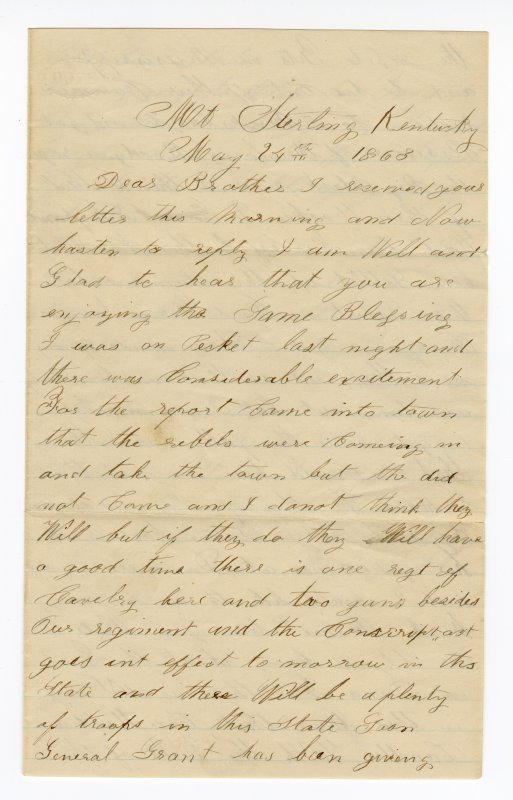 Mt Sterling Kentucky
May 24th 1863
Dear Brother I received your
letter this Morning and Now
hasten to reply I am Well and
Glad to hear that you are
enjoying the Same Blessing
I was on Picket last night and
there was Considerable excitement
For the report Came into town
that the rebels were Comeing in
and take the town but the did
not Come and I donot think they
Will but if they do they Will have
a good time there is one regt of
Cavelry here and two guns besides
Our regiment and the Conscript act
goes int effect to morrow in this
State and there Will be a plenty
of troops in this State Soon
General Grant has been giving